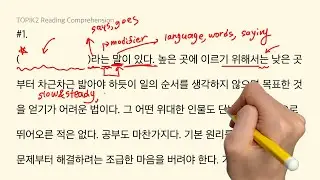 TOPIK2 Reading Comprehension
says, goes
#1.
modifier
language, words, saying
( )라는 말이 있다. 높은 곳에 이르기 위해서는 낮은 곳
부터 차근차근 밟아야 하듯이 일의 순서를 생각하지 않으면 목표한 것
slow & steady,
을 얻기가 어려운 법이다. 그 어떤 위대한 인물도 단
뛰어오른 적은 없다. 공부도 마찬가지다. 기본 원리를
문제부터 해결하려는 조급한 마음을 버려야 한다.